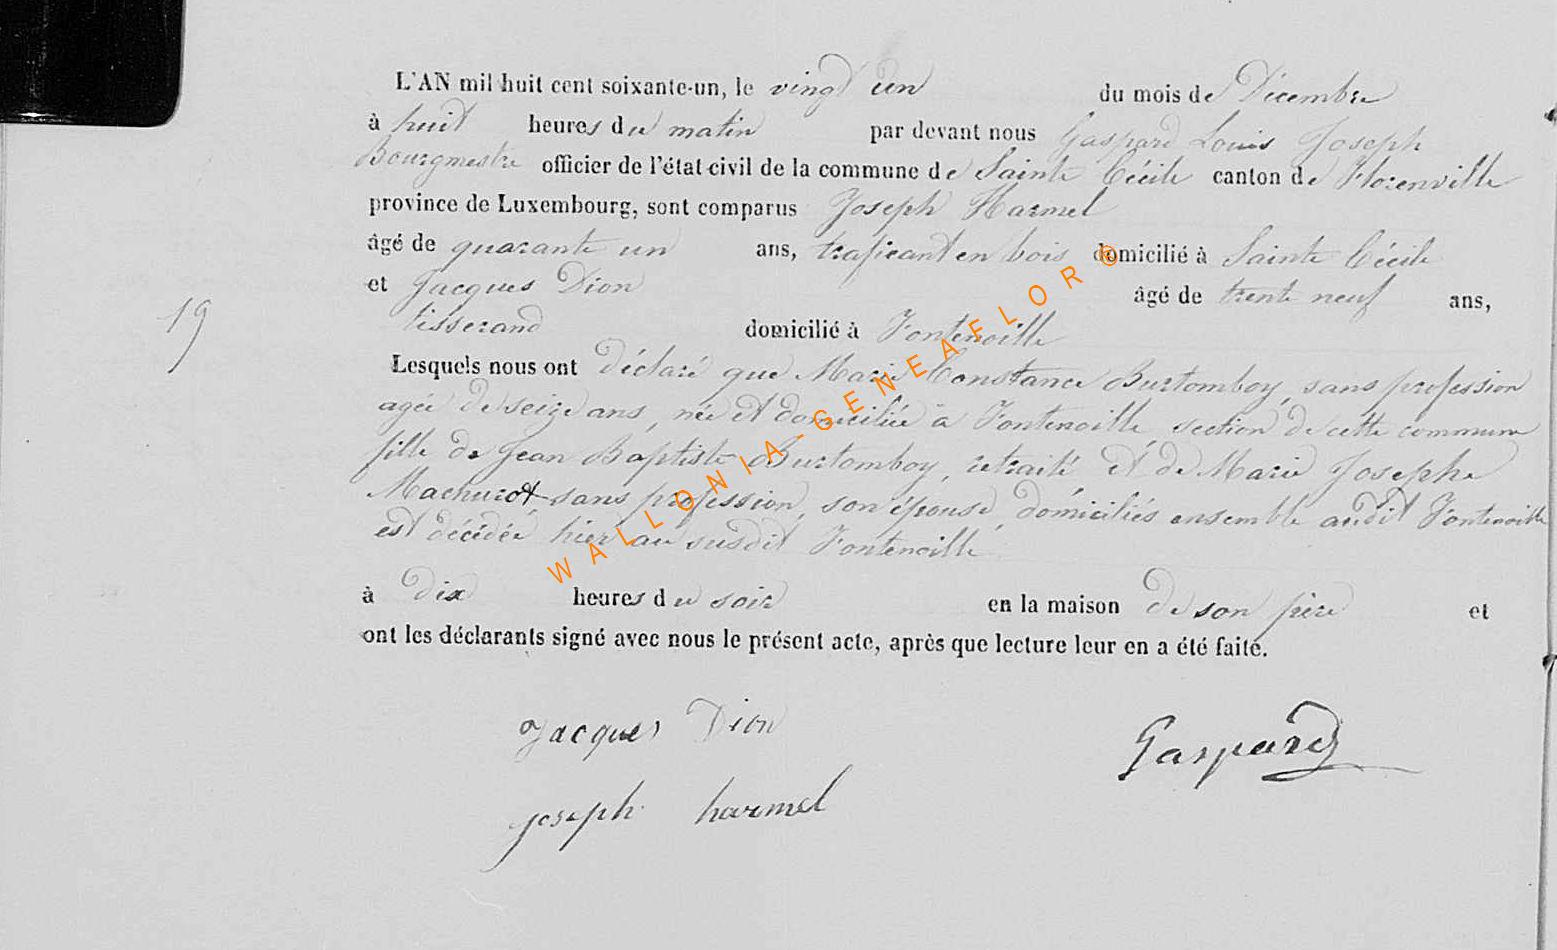 L'AN mil huit cent soixante-un, le vingt un du mois de Décembre
à huit heures du matin par devant nous Gaspard Louis Joseph
Bourgmestre officier de l'état civil de la commune de Sainte Cécile canton de Florenville
province de Luxembourg, sont comparus Joseph Harmel
âgé de quarante un ans, traficant en bois domicilié à Sainte Cécile
et Jacques Dion âgé de trente neuf ans,
19
tisserand domicilié à Fontenoille
Lesquels nous ont déclaré que Marie Constance Burtomboy, sans profession
agée de seize ans, née et domiciliée à Fontenoille, section de cette commune
fille de Jean Baptiste Burtomboy, retraité, et de Marie Josephe
Machurot, sans profession, son épouse, domiciliés ensemble audit Fontenoille
est décédée hier au susdit Fontenoille
à dix heures du soir en la maison de son père et
ont les déclarants signé avec nous le présent acte, après que lecture leur en a été faite.
Jacques Dion
Gaspard
joseph harmel
WALLONIA-GENEAFLOR ©